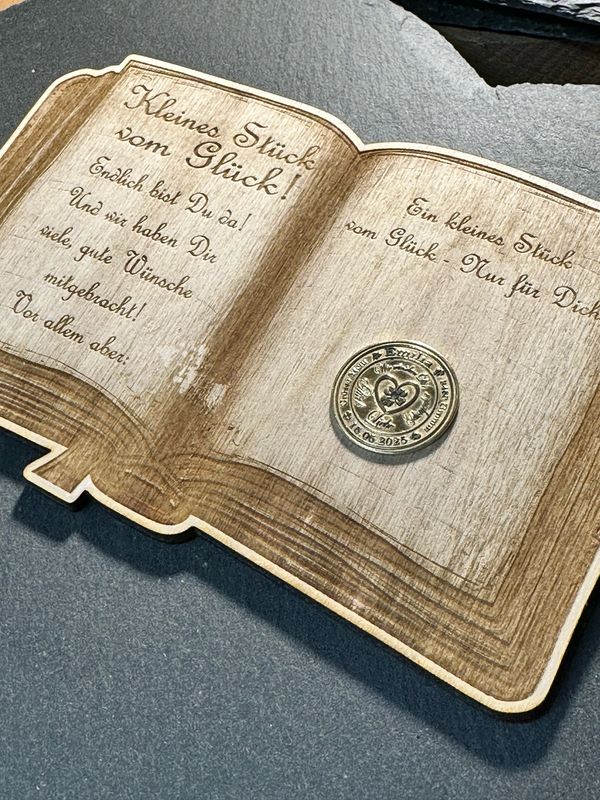 Kleines Stück
vom Glück!
Endlich bist Du da!
Und wir haben Dir
viele, gute Wünsche
mitgebracht!
Vor allem aber:
Ein kleines Stück
vom Glück - Nur für Dich
Emilia
Liebe
16.06.2025